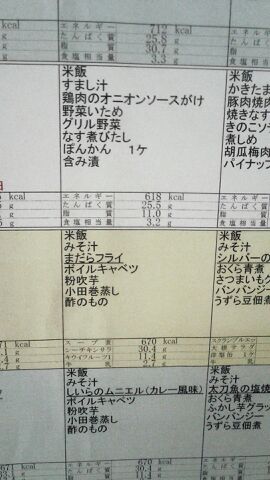 kcal エネルギー 712 kcal エネルギー
g たんぱく質 25.8 g たんぱく質
g 脂質 30.7 g 脂質
g 食塩相当量 3.3 g 食塩相当量
米飯
すまし汁
鶏肉のオニオンソースがけ
野菜いため
グリル野菜
なす煮びたし
ぽんかん 1ケ
含み漬
米飯
かきたま
豚肉焼肉
焼きなす
きのこソ
煮しめ
胡瓜梅肉
パイナッフ
kcal エネルギー 618 kcal エネルギー
g たんぱく質 25.5 g たんぱく質
g 脂質 11.0 g 脂質
g 食塩相当量 3.2 g 食塩相当量
米飯
みそ汁
まだらフライ
ボイルキャベツ
粉吹芋
小田巻蒸し
酢のもの
米飯
みそ汁
シルバーの
おくら青煮
さつまいも
バンバンジー
うずら豆佃煮
kcal 670 kcal
g シーチキンサラ 30.4 g 大根サラダ
g キウイフルーツ1 11.4 g
g 2.7 g
米飯
みそ汁
しいらのムニエル(カレー風味)
ボイルキャベツ
粉吹芋
小田巻蒸し
酢のもの
米飯
みそ汁
太刀魚の塩焼
おくら青煮
ふかし芋グラッ
バンバンジー
うずら豆佃煮
671 kcal エネルギー 670 kcal エネルギー
g たんぱく質 30.4 g たんぱく質
g 脂質 11.4 g 脂質